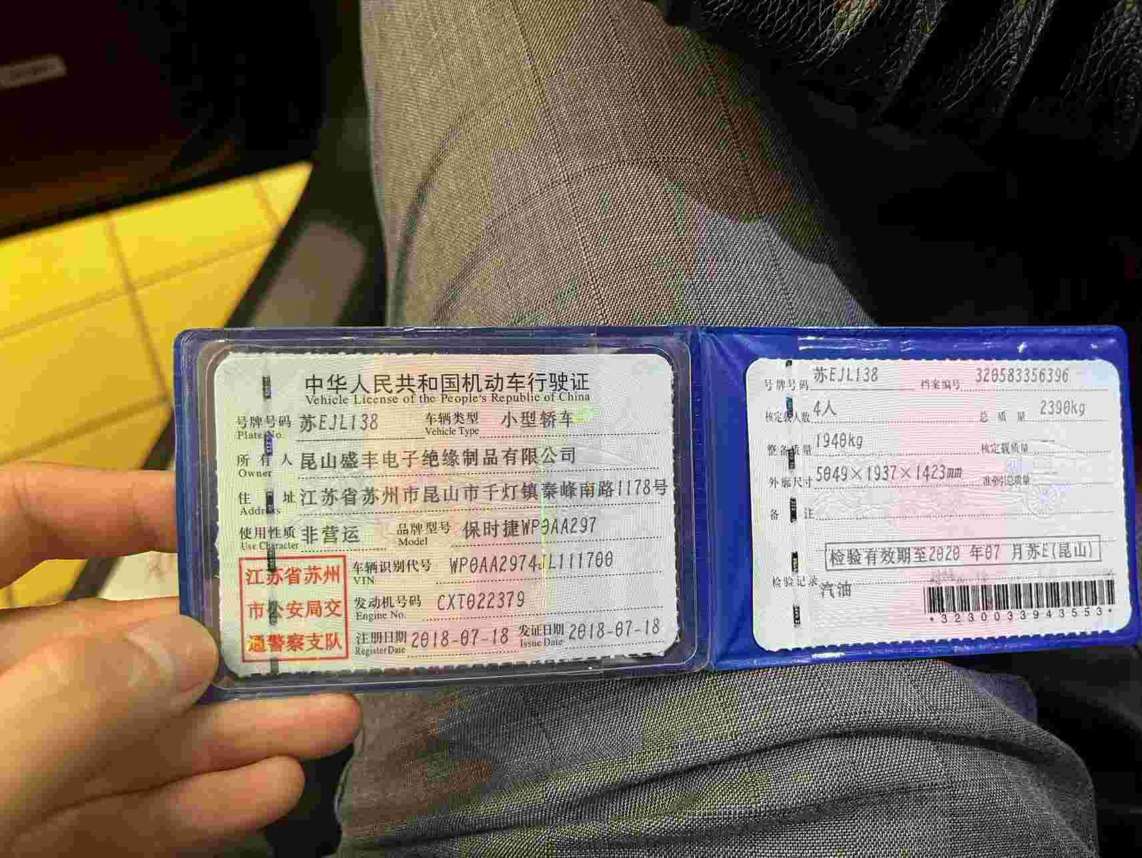 中华人民共和国机动车行驶证
Vehicle License of the People's Republic of China
号牌号码 苏EJL138 车辆类型 小型轿车
Plate No. Vehicle Type
所有人 昆山盛丰电子绝缘制品有限公司
Owner
住址 江苏省苏州市昆山市千灯镇秦峰南路1178号
Address
使用性质 非营运 品牌型号 保时捷WP0AA297
Use Character Model
江苏省苏州
市公安局交
通警察支队
车辆识别代号 WP0AA2974JL111700
VIN
发动机号码 CXT022379
Engine No.
注册日期 2018-07-18 发证日期 2018-07-18
Register Date Issue Date
号牌号码 苏EJL138 档案编号 320583356396
核定载人数 4人 总质量 2390kg
整备质量 1940kg 核定载质量
外廓尺寸 5049×1937×1423mm 准牵引总质量
备注
检验有效期至2020 年07 月苏E(昆山)
检验记录
汽油
*3230033943553*